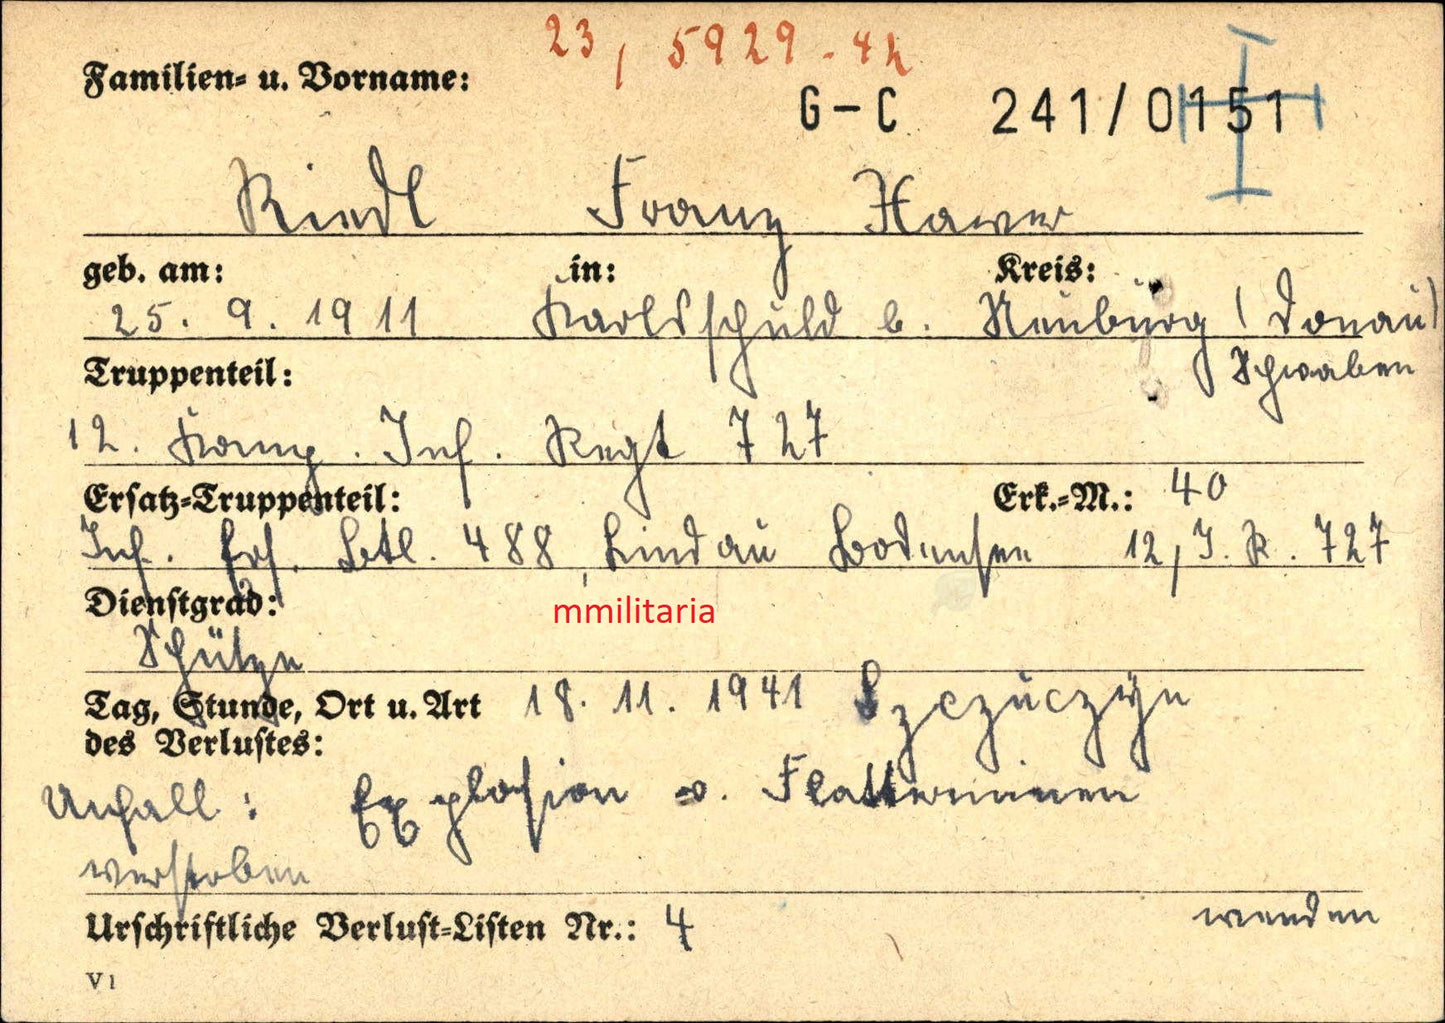 23, 5929-42
Familien- u. Vorname:
G-C 241/0151
Riedl Franz Xaver
geb. am: in: Kreis:
25. 9. 1911 Karlshuld b. Neuburg (Donau)
Schwaben
Truppenteil:
12. Komp. Inf. Regt 727
Ersatz-Truppenteil: Erk.-M.: 40
Inf. Ers. Btl. 488, Lindau Bodensee 12, I. R. 727
Dienstgrad:
mmilitaria
Schütze
Tag, Stunde, Ort u. Art 18. 11. 1941 Szczuczyn
des Verlustes:
Unfall: Explosion v. Flatterminen
verstorben
Urschriftliche Verlust-Listen Nr.: 4 wenden
V 1